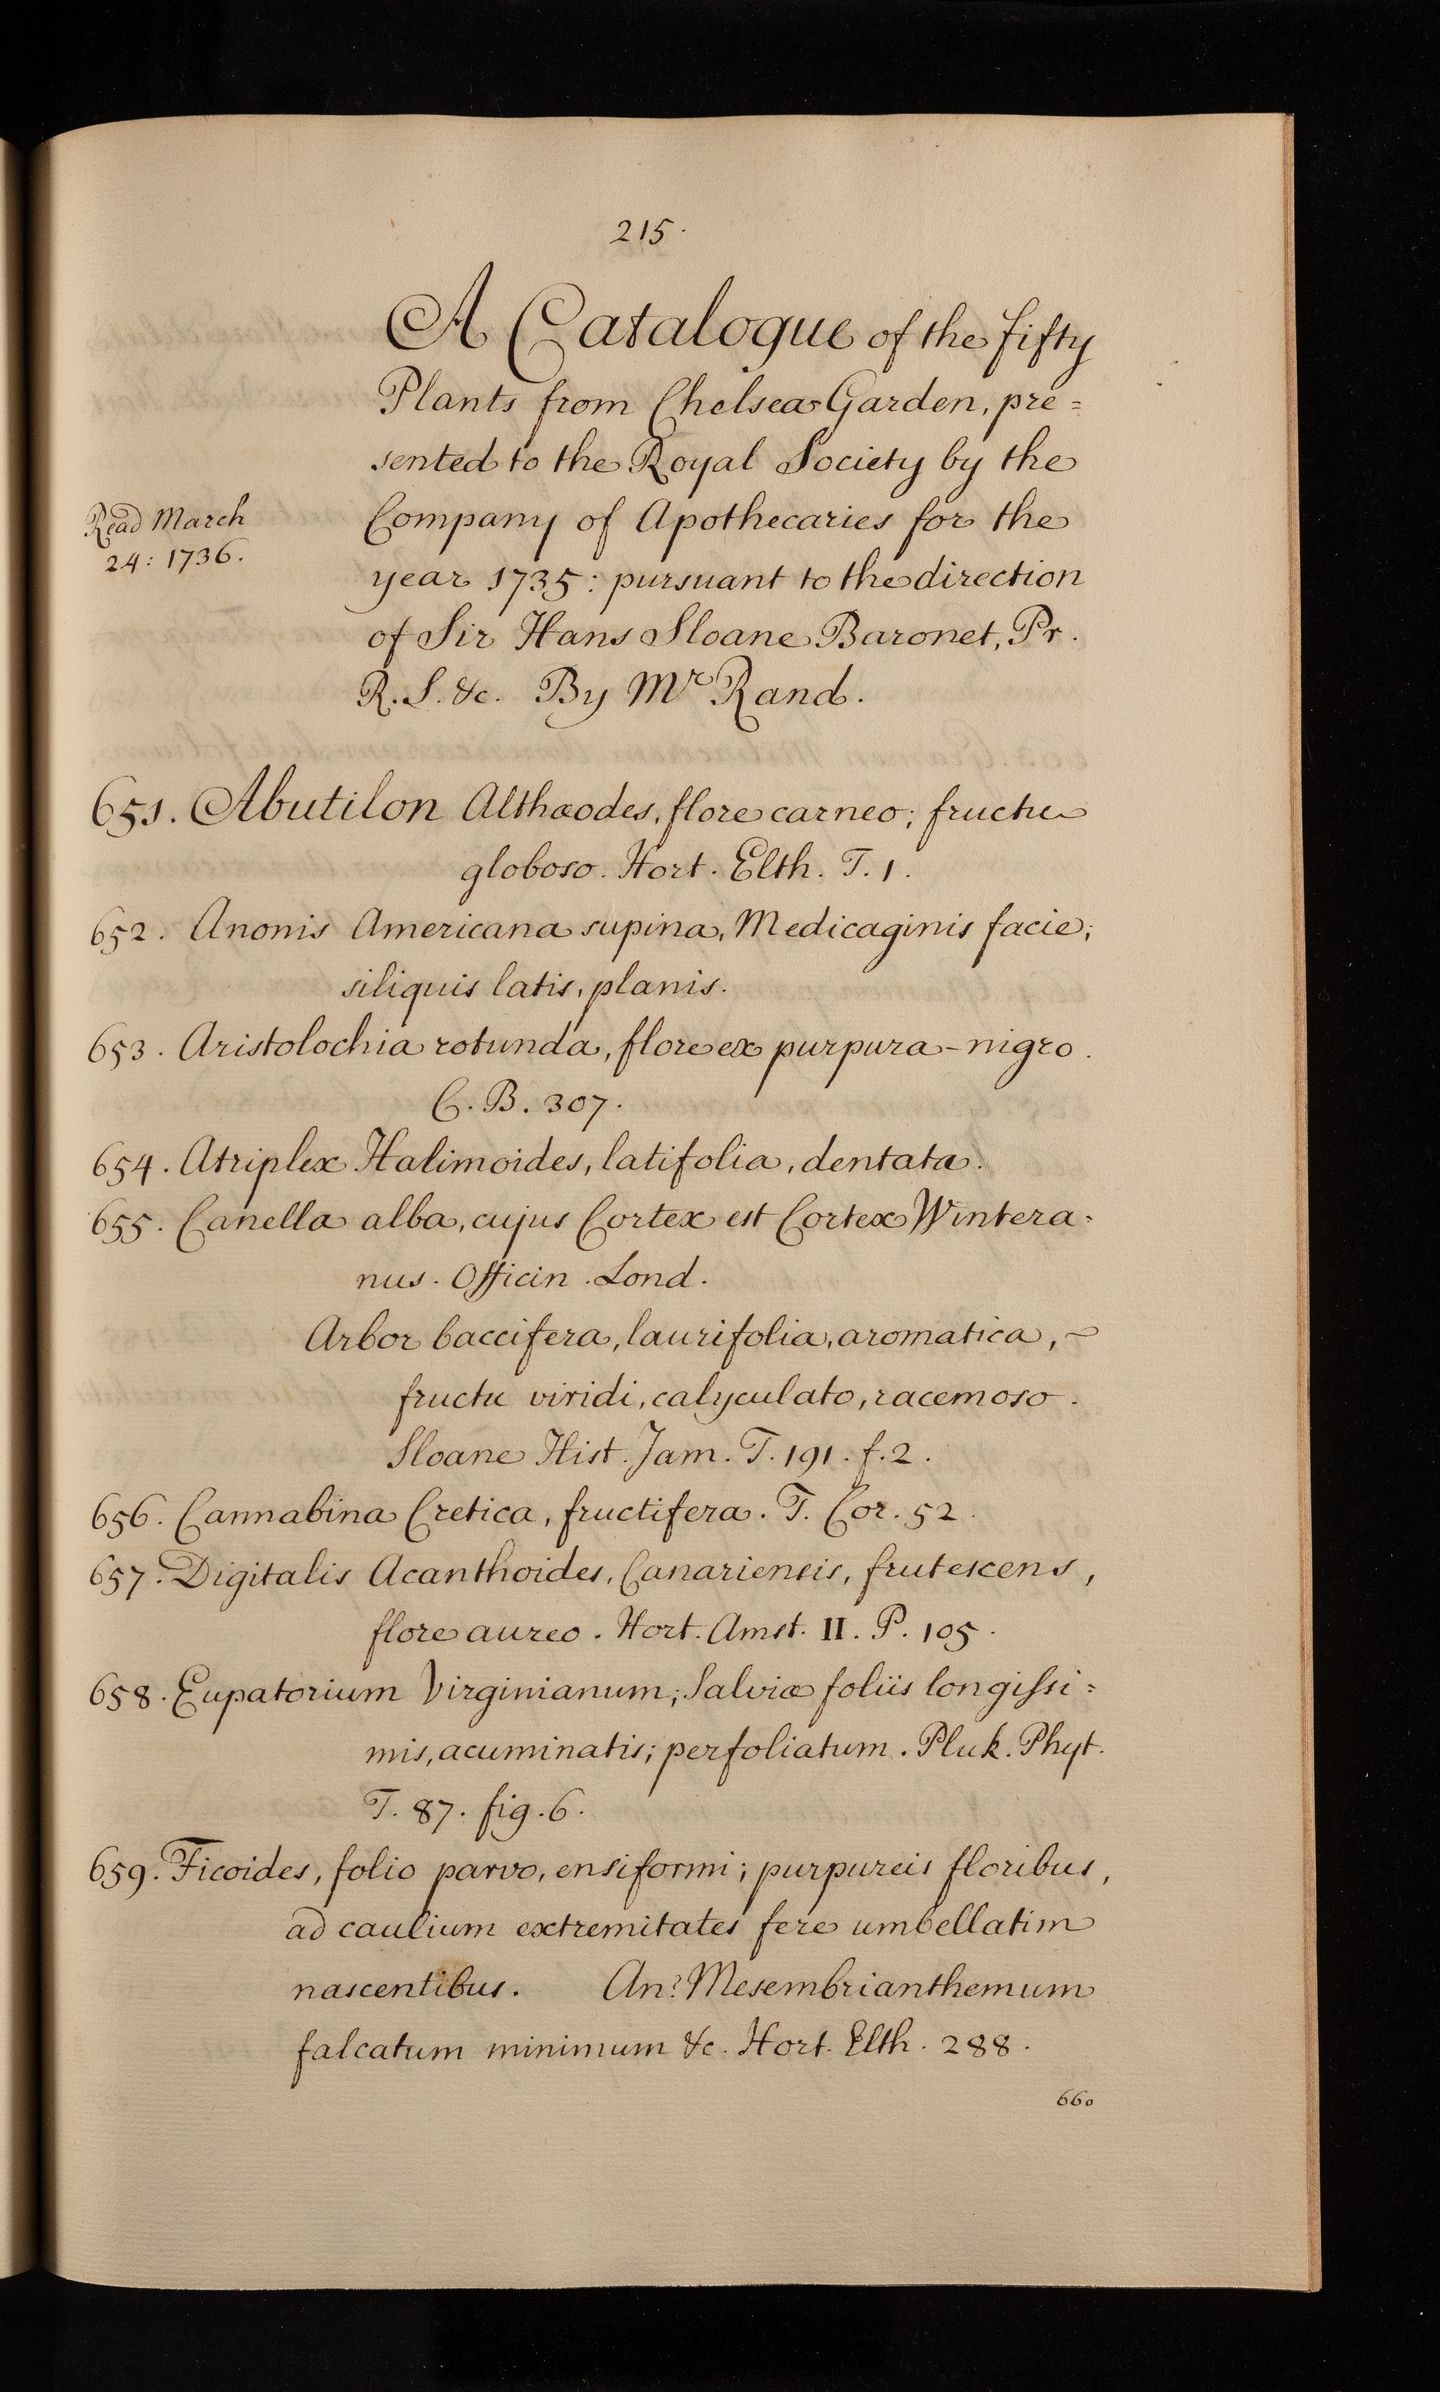 215.
A Catalogue of the fifty
Plants from Chelsea Garden, pre=
sented to the Royal Society by the
Read March
24: 1736.
Company of Apothecaries for the
year 1735: pursuant to the direction
of Sir Hans Sloane Baronet, Pr.
R. S. &c. By Mr Rand.
651. Abutilon Althæodes, flore carneo; fructu
globoso. Hort. Elth. T. 1.
652. Anonis Americana supina, Medicaginis facie;
siliquis latis, planis.
653. Aristolochia rotunda, flore ex purpura-nigro.
C. B. 307.
654. Atriplex Halimoides, latifolia, dentata.
655. Canella alba, cujus Cortex est Cortex Wintera=
nus. Officin. Lond.
Arbor baccifera, laurifolia, aromatica, ~
fructu viridi, calyculato, racemoso.
Sloane Hist. Jam. T. 191. f. 2.
656. Cannabina Cretica, fructifera. T. Cor. 52.
657. Digitalis Acanthoides, Canariensis, frutescens,
flore aureo. Hort. Amst. II. P. 105.
658. Eupatorium Virginianum; Salviæ foliis longissi=
mis, acuminatis; perfoliatum. Pluk. Phyt.
T. 87. fig. 6.
659. Ficoides, folio parvo, ensiformi; purpureis floribus,
ad caulium extremitates fere umbellatim
nascentibus. An? Mesembrianthemum
falcatum minimum &c. Hort. Elth. 288.
660